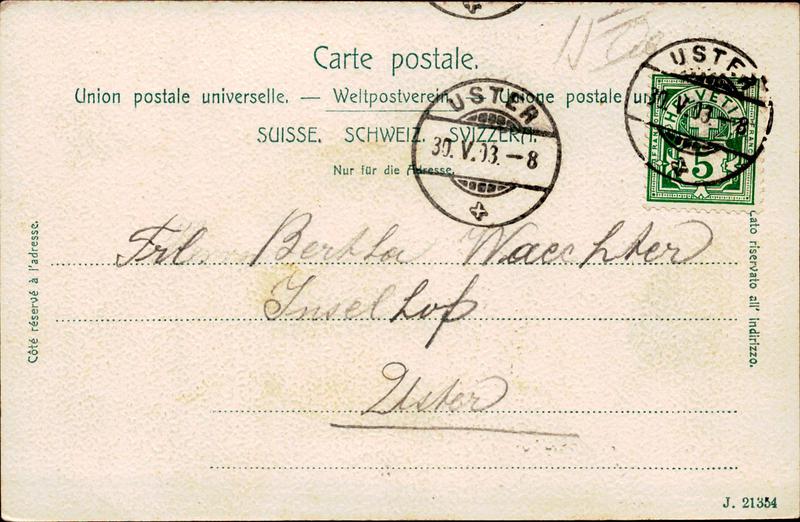 Carte postale.
Union postale universelle. — Weltpostverein. — Unione postale
SUISSE. SCHWEIZ. SVIZZERA.
Nur für die Adresse.
USTER
30. V. 03. – 8
USTER
30. V. 03. – 8
HELVETIA
FRANCO
FRANCO
5
Côté réservé à l'adresse.
Lato riservato all' indirizzo.
Frl. Bertha Waechter
Inselhof
Uster
J. 21354